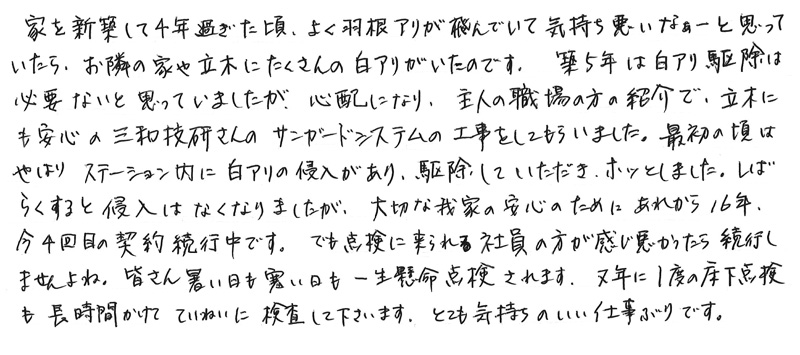 家を新築して4年過ぎた頃、よく羽根アリが飛んでいて気持ち悪いなぁーと思って
いたら、お隣の家や立木にたくさんの白アリがいたのです。 築5年は白アリ駆除は
必要ないと思っていましたが、心配になり、主人の職場の方の紹介で、立木に
も安心の三和技研さんのサンガードシステムの工事をしてもらいました。最初の頃は
やはりステーション内に白アリの侵入があり、駆除していただき、ホッとしました。しば
らくすると侵入はなくなりましたが、大切な我家の安心のためにあれから16年、
今4回目の契約続行中です。 でも点検に来られる社員の方が感じ悪かったら続行し
ませんよね。皆さん暑い日も寒い日も一生懸命点検されます。又年に1度の床下点検
も長時間かけてていねいに検査して下さいます。とても気持ちのいい仕事ぶりです。